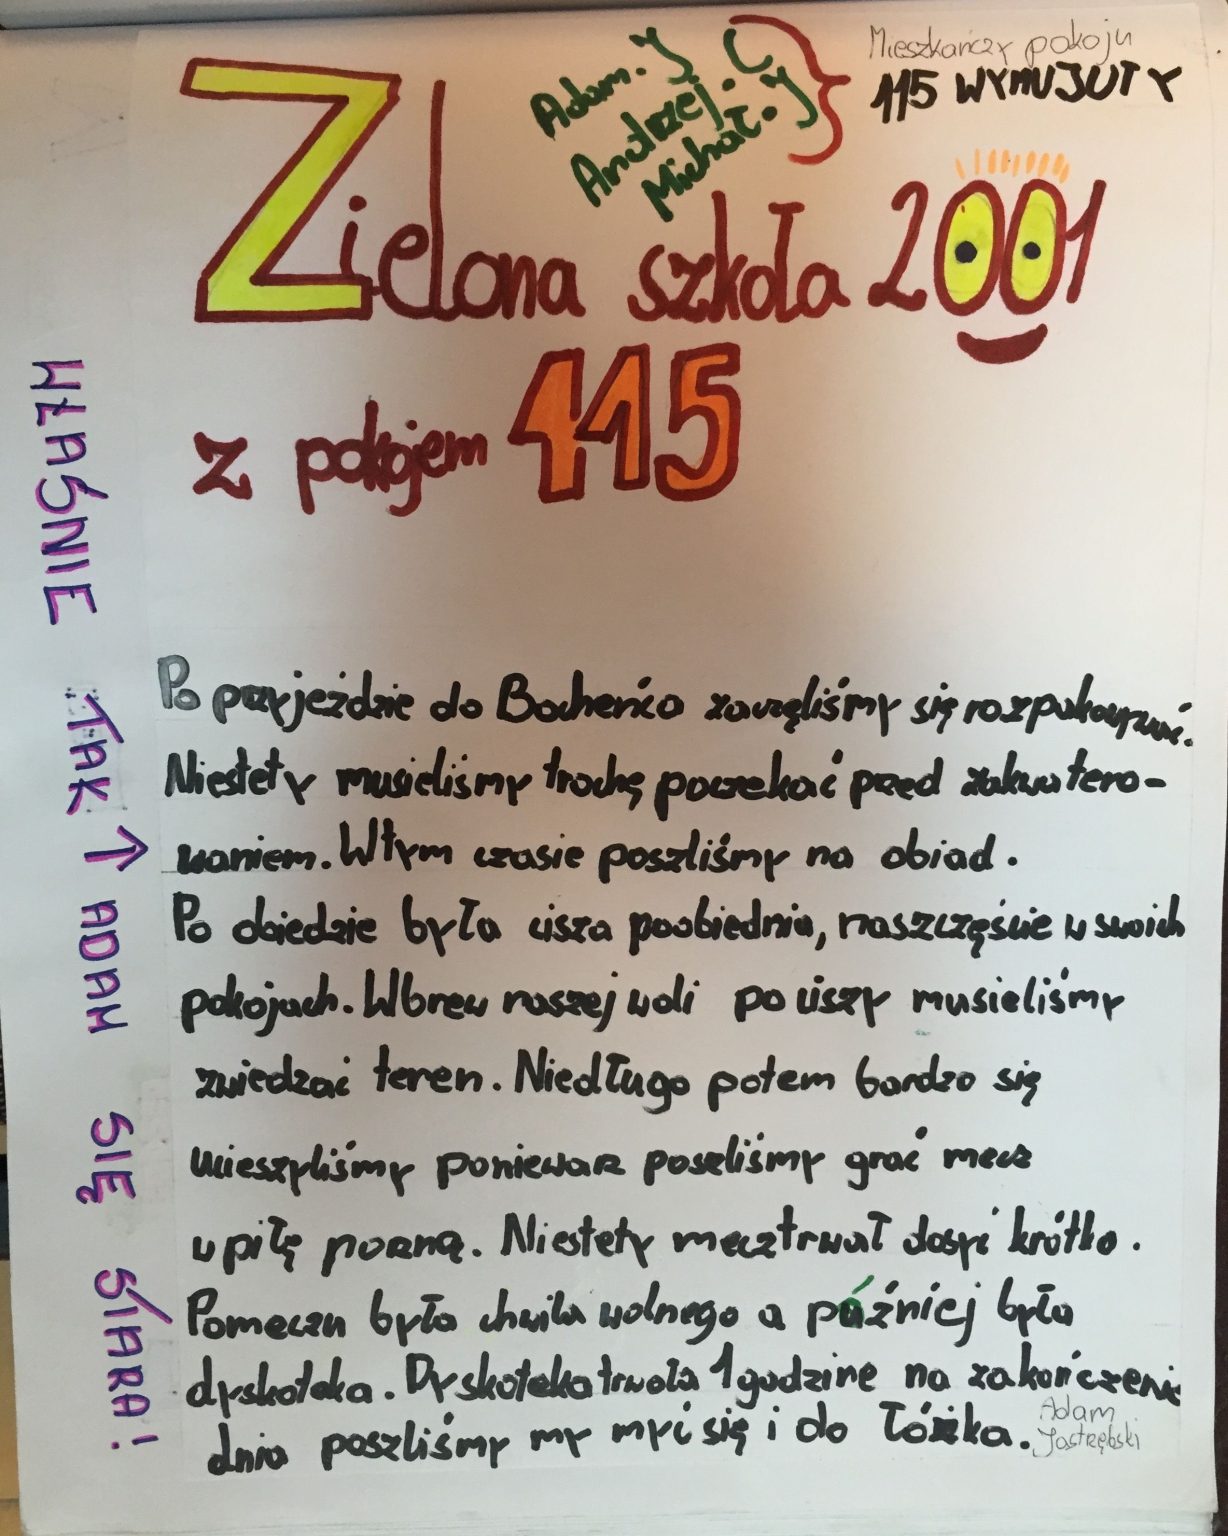 Adam. J
Andrzej. C
Michał. J
Mieszkańczy pokoju
115 WYMUJUTY
Zielona szkoła 2001
z pokojem 115
Po przyjeździe do Bocheńca zaczęliśmy się rozpakowywać.
Niestety musieliśmy trochę poczekać przed zakwatero-
waniem. Wtym czasie poszliśmy na obiad.
Po obiedzie była cisza poobiednia, naszczęście w swoich
pokojach. Wbrew naszej woli po ciszy musieliśmy
zwiedzać teren. Niedługo potem bardzo się
ucieszyliśmy poniewarz poszliśmy grać mecz
w piłę nożną. Niestety mecz trwał dosyć krótko.
Pomeczu było chwila wolnego a później była
dyskoteka. Dyskoteka trwała 1 godzine na zakończenie
dnia poszliśmy my myć się i do łóżka.
Adam
Jastrzębski
WŁAŚNIE TAK ↑ ADAM SIĘ SIARA!